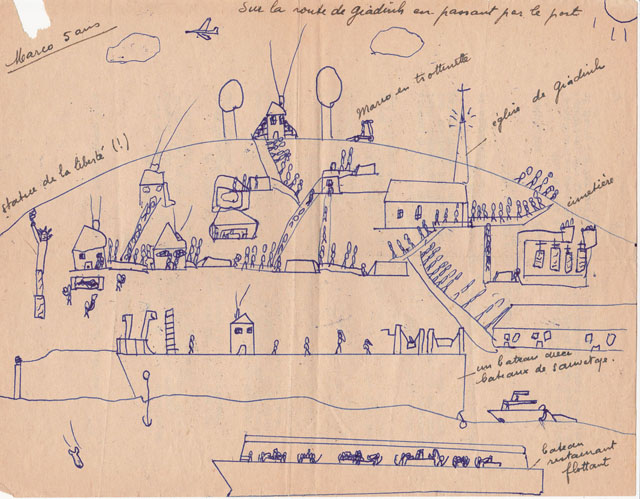 Sur la route de Giadinh en passant par le port
Marco 5 ans
Marco en trottinette
église de Giadinh
statue de la liberté (!)
cimetière
un bateau avec
bateaux de sauvetage.
bateau
restaurant
flottant